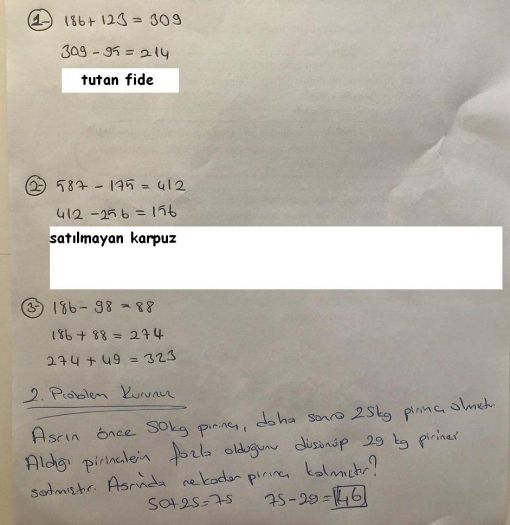 1- 186 + 123 = 309
309 - 95 = 214
tutan fide
2- 587 - 175 = 412
412 - 256 = 156
satılmayan karpuz
3- 186 - 98 = 88
186 + 88 = 274
274 + 49 = 323
2. Problem Kurunuz
Asrın önce 50kg pirinç, daha sonra 25kg pirinç almıştır
Aldığı pirinçlerin fazla olduğunu düşünüp 29 kg pirinci
satmıştır. Asrın'da ne kadar pirinç kalmıştır?
50+25=75 75-29=46